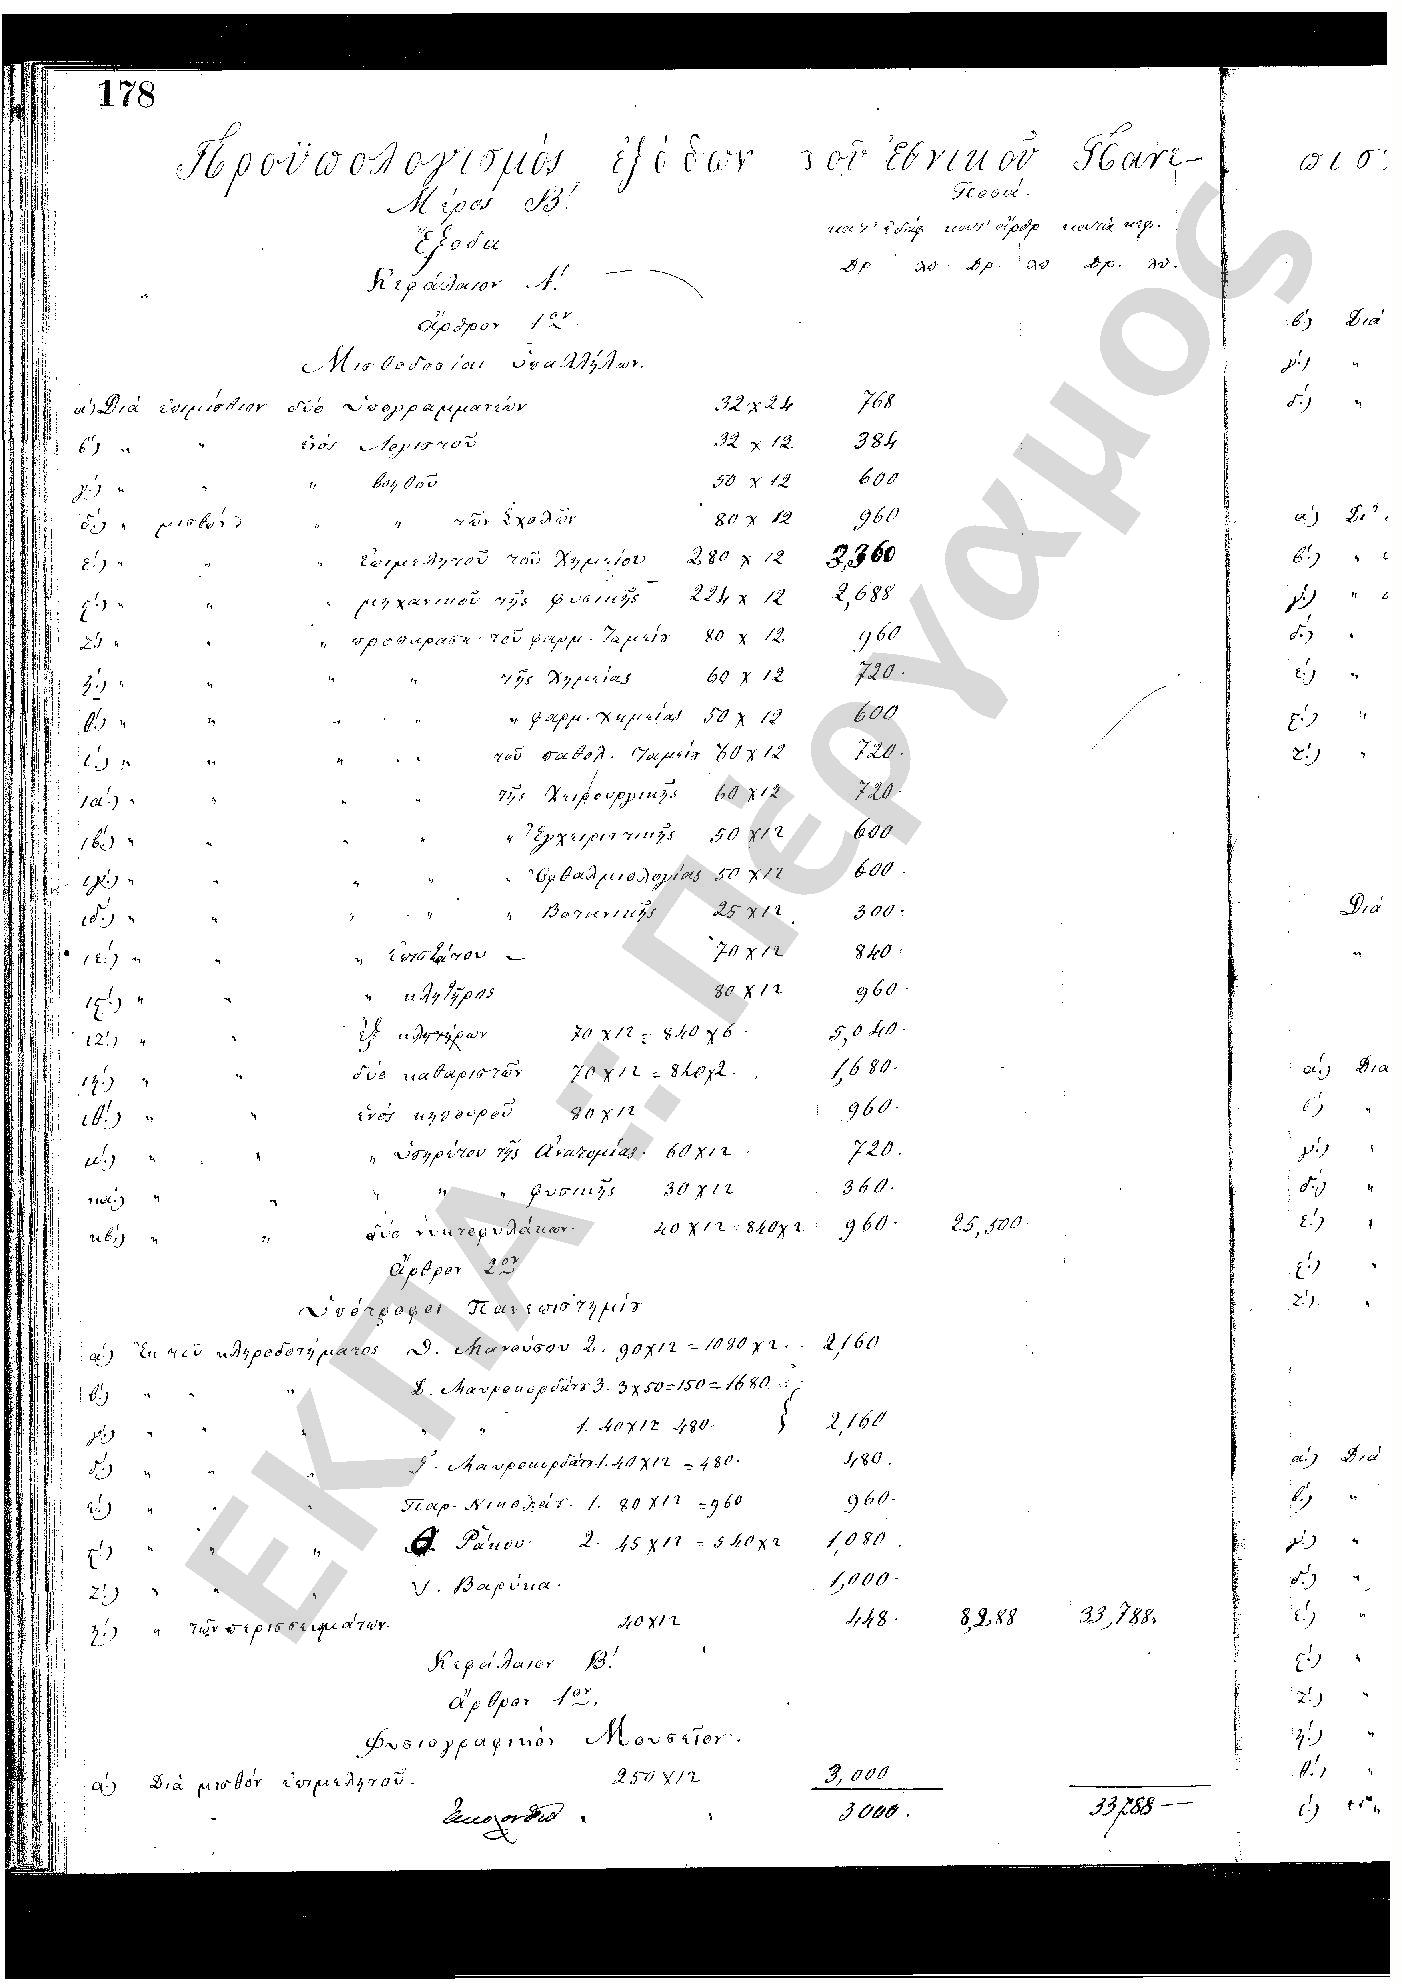 178
Προϋπολογισμός ἐξόδων τοῦ Ἐθνικοῦ Πανε-
Μέρος Β΄.
Ποσά.
Ἔξοδα
κατ' ἐδάφ κατ' ἄρθρ κατά κεφ.
Κεφάλαιον Α΄.
Δρ λπ. Δρ. λπ Δρ. λπ.
ἄρθρον 1ον.
Μισθοδοσίαι ὑπαλλήλων.
α΄) Διά ἐπιμίσθιον δύο ὑπογραμματέων 32 x 24 768
β΄) " " ἑνός Λογιστοῦ 32 x 12 384
γ΄) " " " βοηθοῦ 50 x 12 600
δ΄) " μισθόν " " τῶν Σχολῶν 80 x 12 960
ε΄) " " " ἐπιμελητοῦ τοῦ Χημείου 280 x 12 3,360
ϛ΄) " " " μηχανικοῦ τῆς φυσικῆς 224 x 12 2,688
ζ΄) " " " παρασκ. τοῦ φαρμ. Ταμείου 80 x 12 960
η΄) " " " " τῆς Χημείας 60 x 12 720.
θ΄) " " " " " φαρμ. χημείας 50 x 12 600
ι΄) " " " " τοῦ παθολ. Ταμείου 60 x 12 720.
ια΄) " " " " τῆς Χειρουργικῆς 60 x 12 720.
ιβ΄) " " " " " Ἐγχειριστικῆς 50 x 12 600
ιγ΄) " " " " " Ὀφθαλμιολογίας 50 x 12 600.
ιδ΄) " " " " " Βοτανικῆς 25 x 12 300.
ιε΄) " " " ἐπιστάτου 70 x 12 840.
ιϛ΄) " " " κλητῆρος 80 x 12 960.
ιζ΄) " " ἕξ κλητήρων 70 x 12 = 840 x 6 5,040.
ιη΄) " " δύο καθαριστῶν 70 x 12 = 840 x 2. 1,680.
ιθ΄) " " ἑνός κηπουροῦ 80 x 12 960.
κ΄) " " " ὑπηρέτου τῆς Ἀνατομίας. 60 x 12 720.
κα΄) " " " " " φυσικῆς 30 x 12 360.
κβ΄) " " δύο νυκτοφυλάκων. 40 x 12 = 840 x 2 960. 25,500.
ἄρθρον 2ον
Ὑπότροφοι Πανεπιστημίου
α΄) Ἐκ τοῦ κληροδοτήματος Θ. Μανούσου 2. 90 x 12 = 1080 x 2. 2,160
β΄) " " " Δ. Μαυροκορδάτου 3. 3 x 50 = 150 = 1680.
γ΄) " " " " " 1. 40 x 12 480. } 2,160
δ΄) " " " Γ. Μαυροκορδάτου 1. 40 x 12 = 480. 480.
ε΄) " " " Παρ. Νικολάου. 1. 80 x 12 = 960 960.
ϛ΄) " " " Θ. Ράκου. 2. 45 x 12 = 540 x 2 1,080.
ζ΄) " " " Βαρύκα. 1,000.
η΄) " τῶν περισσευμάτων. 40 x 12 448. 8,288 33,788.
Κεφάλαιον Β΄.
ἄρθρον 1ον.
Φυσιογραφικόν Μουσεῖον.
α΄) Διά μισθόν ἐπιμελητοῦ. 250 x 12 3,000
3000. 33788 —
πισ
β΄) Διά
γ΄) "
δ΄) "
α΄) Διά
β΄) "
γ΄) "
δ΄) "
ε΄) "
ϛ΄) "
ζ΄) "
Διά
"
α΄) Διά
β΄) "
γ΄) "
δ΄) "
ε΄) "
ϛ΄) "
ζ΄) "
α΄) Διά
β΄) "
γ΄) "
δ΄) "
ε΄) "
ϛ΄) "
ζ΄) "
η΄) "
θ΄) "
ι΄)
ΕΚΠΑ :: Πέργαμος